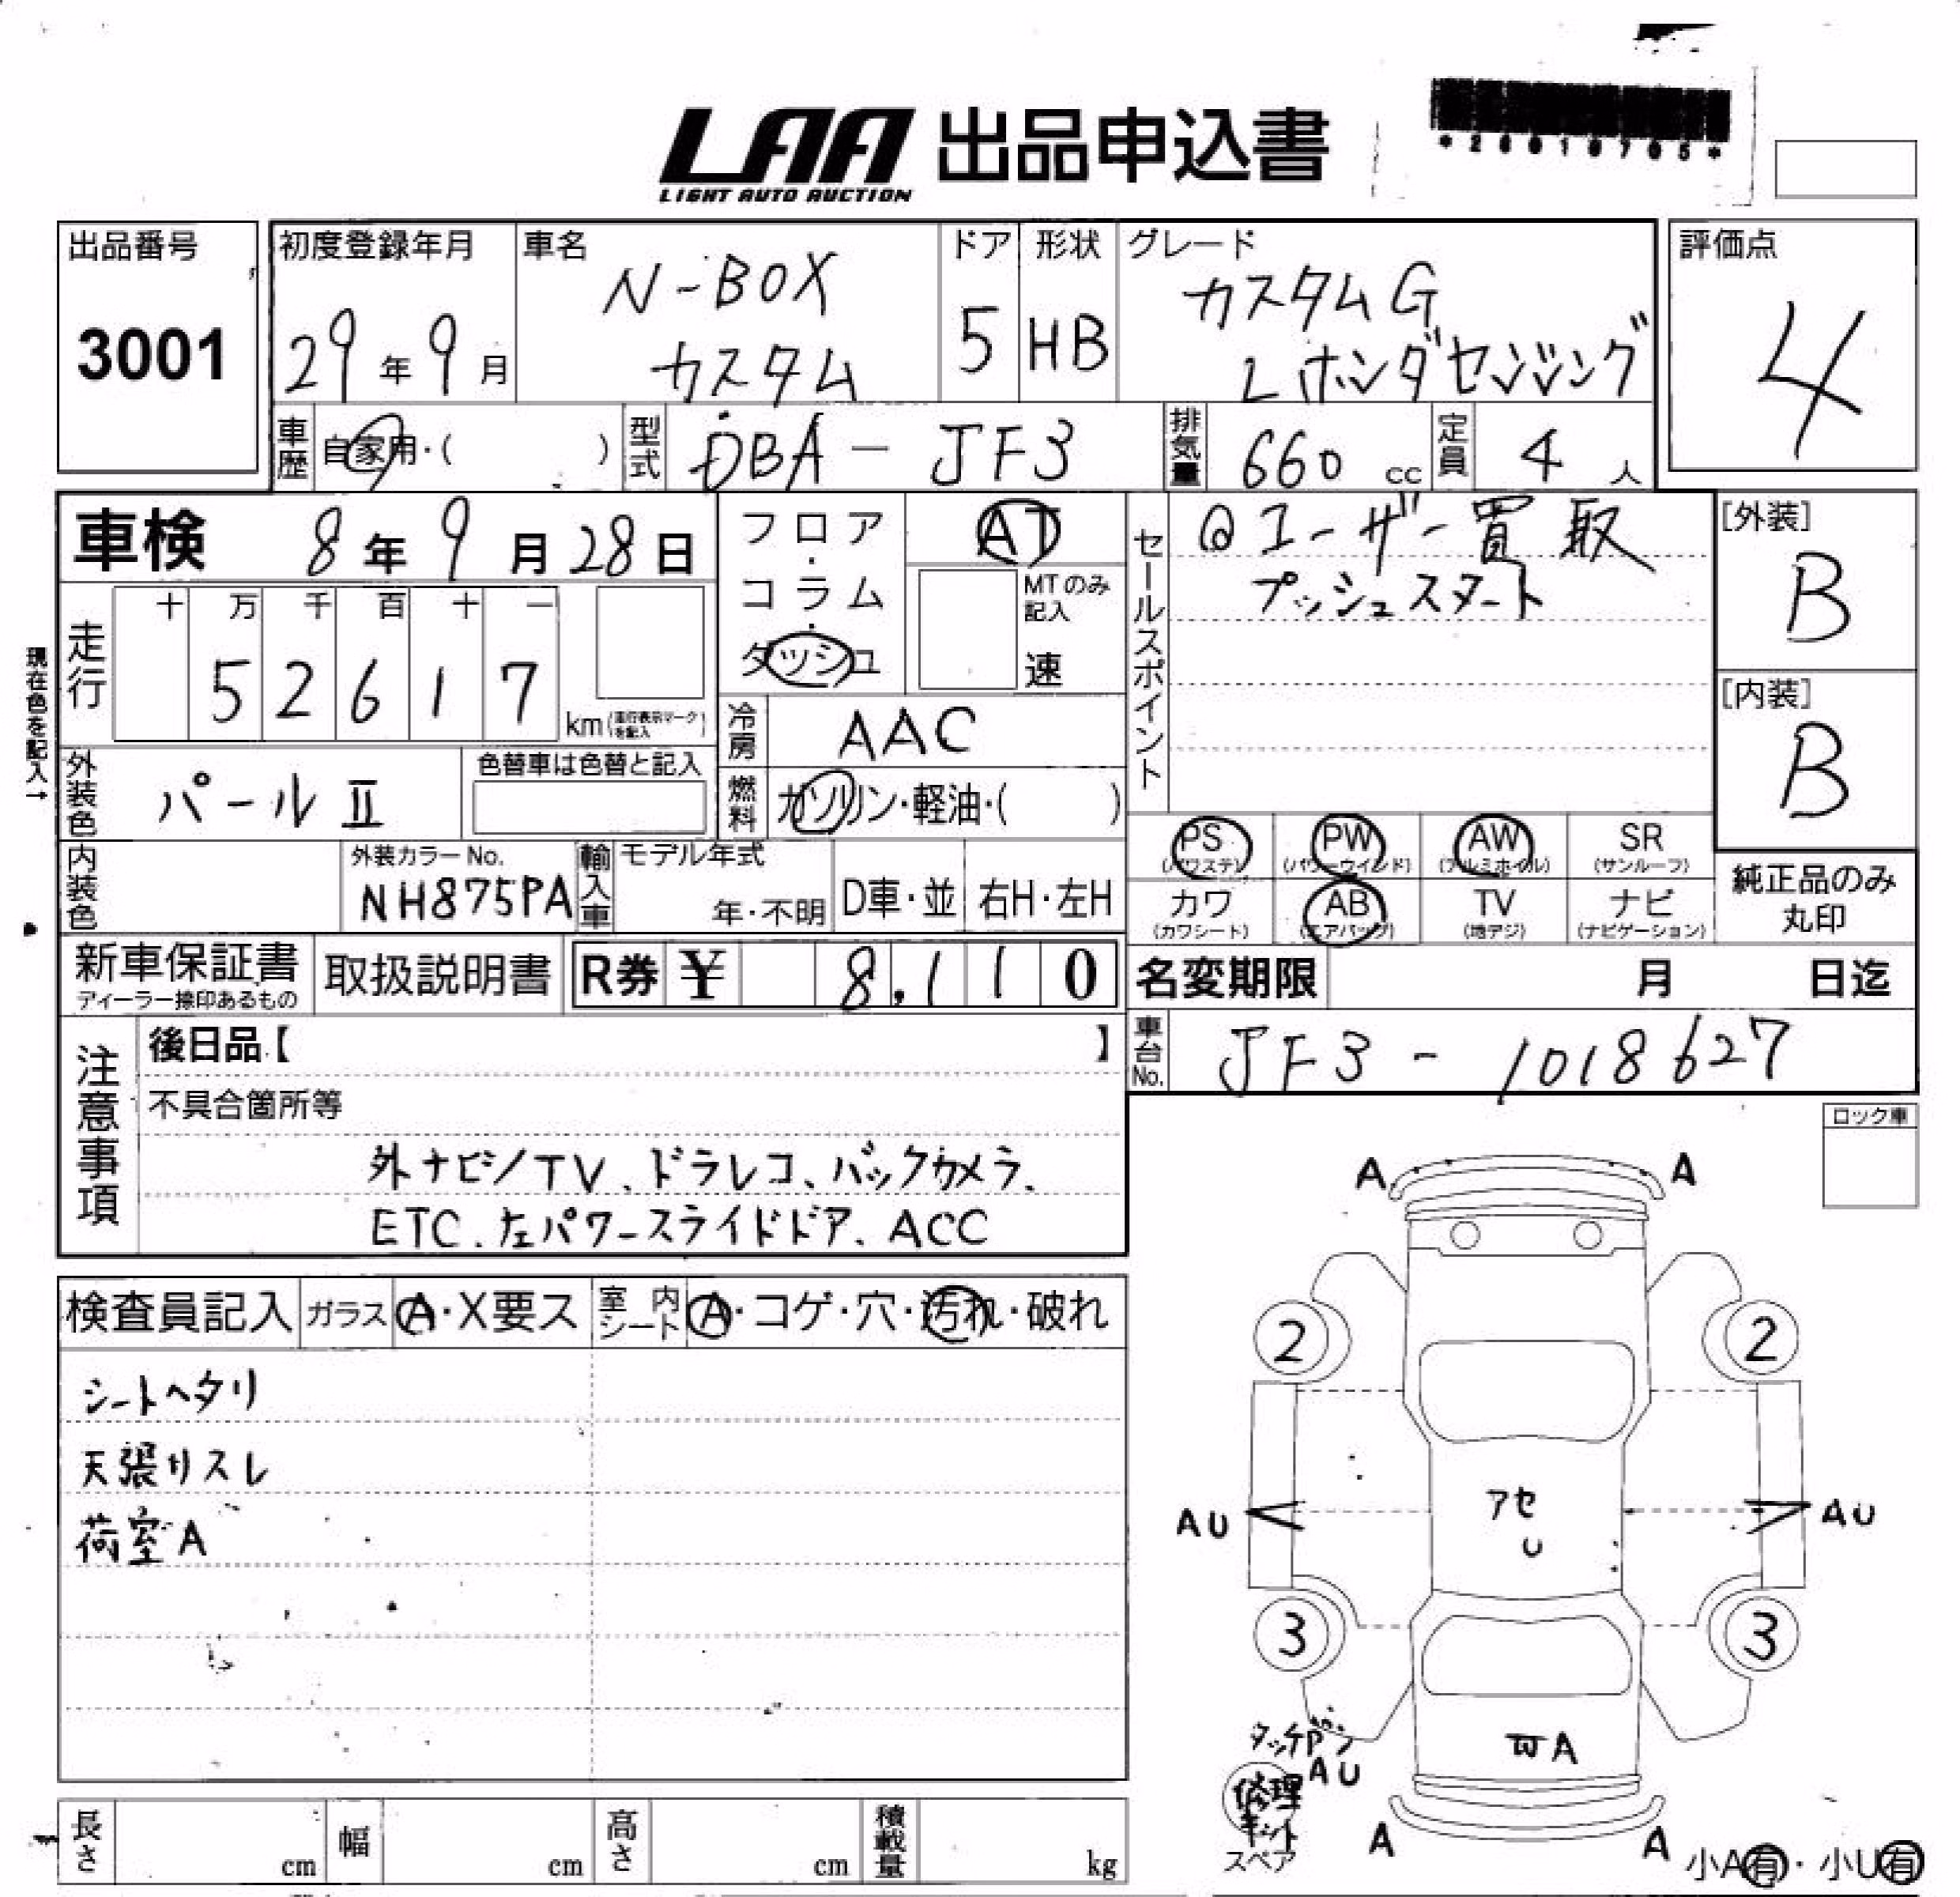 LAA 出品申込書
LIGHT AUTO AUCTION
出品番号
3001
初度登録年月
29年9月
車名
N-BOX
カスタム
ドア
5
形状
HB
グレード
カスタムG
Lホンダセンシング
評価点
4
車歴 自家用・( )
型式 DBA-JF3
排気量 660cc
定員 4人
車検 8年9月28日
現在色を記入→
走行
十 万 千 百 十 一
5 2 6 1 7 km
(走行表示マークを記入)
フロア・コラム・ダッシュ
AT
MTのみ記入
速
冷房 AAC
燃料 ガソリン・軽油・( )
外装色 パールⅡ
色替車は色替と記入
内装色
外装カラーNo.
NH875PA
輸入車
モデル年式
年・不明
D車・並
右H・左H
セールスポイント
@ユーザー買取
プッシュスタート
[外装]
B
[内装]
B
PS (パワステ)
PW (パワーウインド)
AW (アルミホイル)
SR (サンルーフ)
カワ (カワシート)
AB (エアバック)
TV (地デジ)
ナビ (ナビゲーション)
純正品のみ
丸印
新車保証書
ディーラー捺印あるもの
取扱説明書
R券 ¥ 8,110
名変期限 月 日迄
車台No. JF3-1018627
注意事項
後日品【 】
不具合箇所等
外ナビ/TV、ドラレコ、バックカメラ、
ETC、左パワースライドドア、ACC
検査員記入
ガラス A・X要ス
室内シート A・コゲ・穴・汚れ・破れ
シートヘタリ
天張リスレ
荷室A
ロック車
A A
2 2
アセ
U
AU AU
3 3
タッチペン
AU
A
修理
キット
スペア
A A
小A有・小U有
長さ cm
幅 cm
高さ cm
積載量 kg